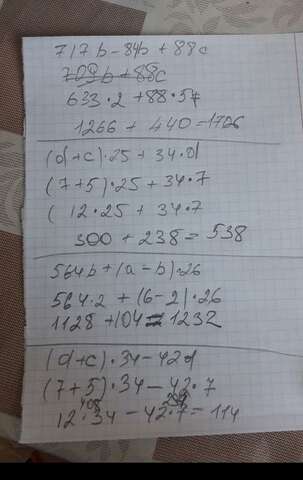 717b-84b+88c
709b+88c
633·2+88·5
1266+440=1706
(d+c)·25+34·d
(7+5)·25+34·7
( 12·25+34·7
300+238=538
564b+(a-b)·26
564·2+(6-2)·26
1128+104=1232
(d+c)·34-42d
(7+5)·34-42·7
408 294
12·34-42·7=114